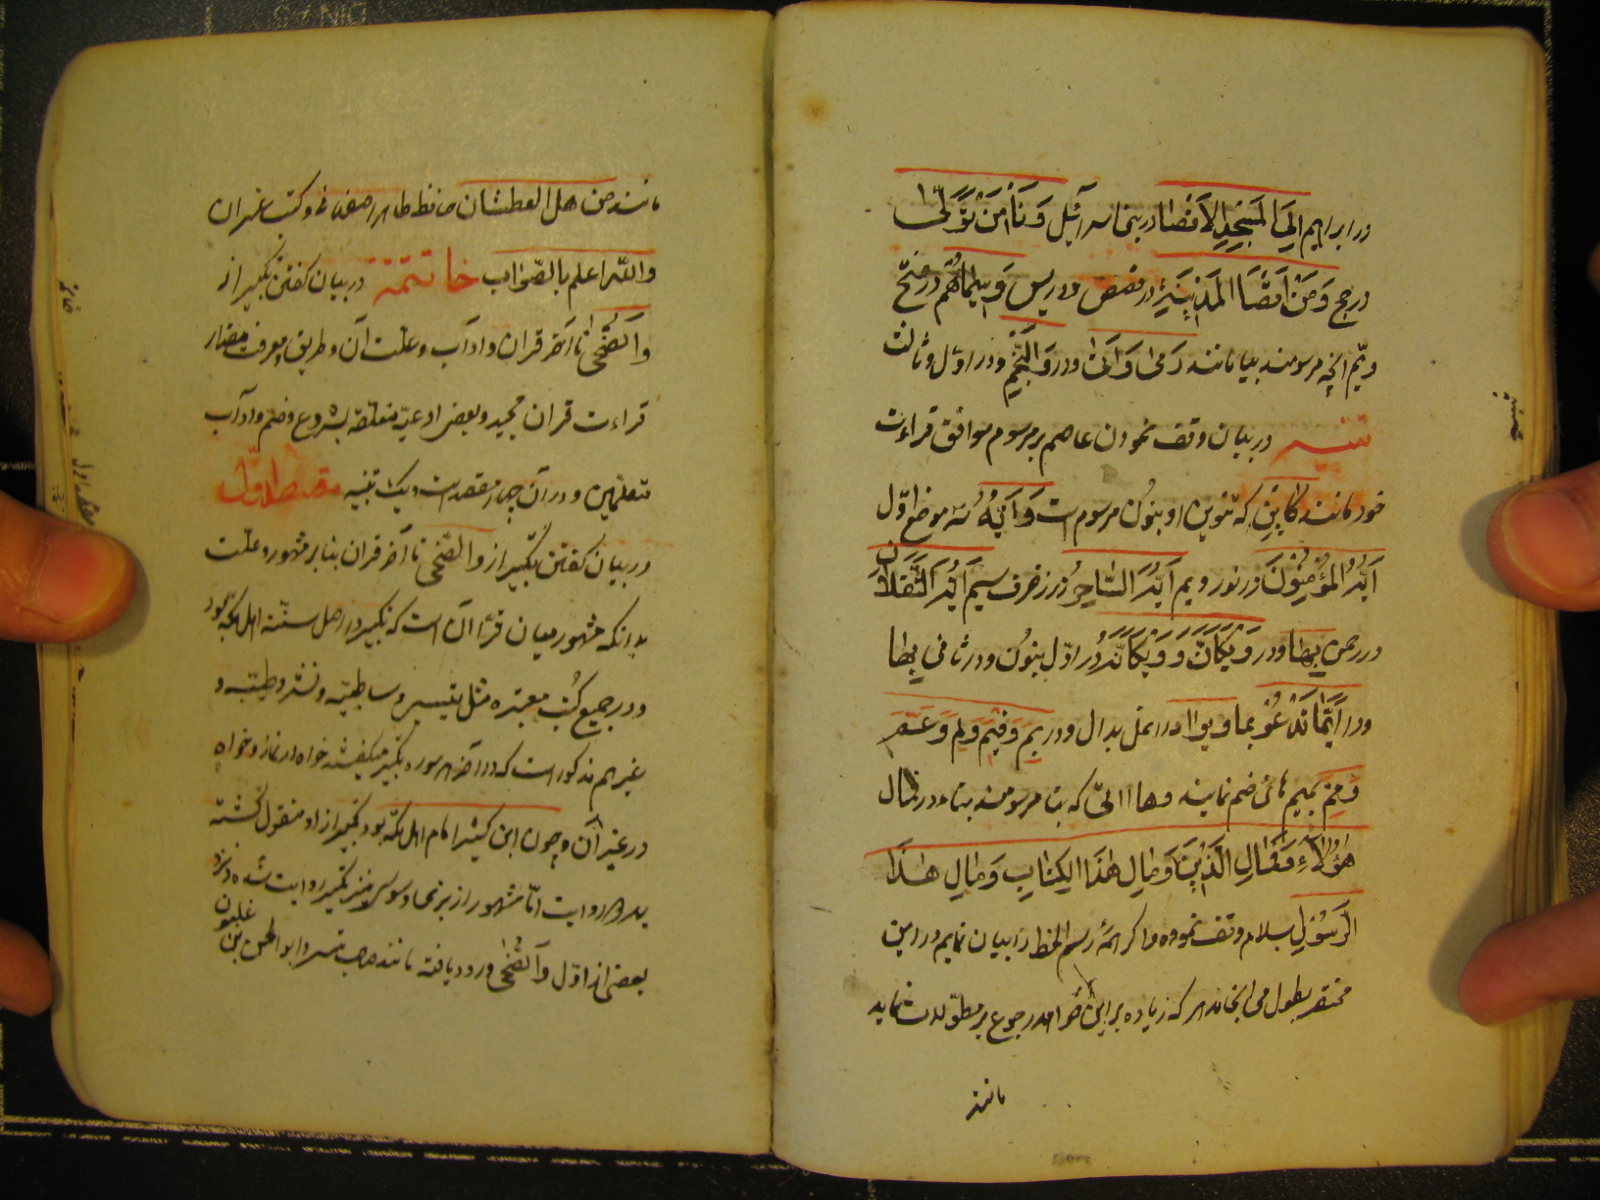 در ابراهیم اِلَی المَسْجِدِ الاَقْصَا در بنی اسرائیل وَ مَنْ تَوَلَّی
در حج وَ مِنْ اَقْصَا المَدِینَةِ در قصص و یس وَ سِیمَاهُم در فتح
مرسومند بیا مانند رَمی و در وَالنَّجْم و در اوّل و ثالث
تنبیه در بیان وقف نمودن عاصم بر مرسوم موافق قراءت
خود مانند کَاَیِّنْ که تنوین او بنون مرسومست وَ اَیُّهَ سه موضع اوّل
اَیُّهَ المُؤمِنُونَ در نور دویم اَیُّهَ السَّاحِرُ در زخرف سیم اَیُّهَ الثَّقَلَانِ
در رحمن بِها و در وَیْکَاَنَّ وَ وَیْکَاَنَّهُ در اوّل بنون و در ثانی بها
و در اَیّاًمَّا تَدْعُوْ بما و بواد در نمل بدال و در بِمَ وَ فِیمَ وَ لِمَ وَ عَمَّ
وَ مِمَّ بمیم هائی ضم نمایند و هاآتی که بتا مرسومند بتا و در فَمَالِ
هؤُلَآءِ فَمَالِ الَّذِینَ وَ مَالِ هٰذَا الکِتٰبِ وَ مَالِ هٰذَا
الرَّسُولِ بلام وقف نموده و اگر همهٔ رسم الخط را بیان نمایم در این
مختصر بطول می انجامد هر که زیاده بر این خواهد رجوع بر مطوّلات نماید
مانند
تنبیه
مانند العطشان حافظ طاهر اصفهانی و کتب غیر ان
والله اعلم بالصّواب خاتمة در بیان گفتن تکبیر از
وَالضُّحی تا آخر قران و آداب و علّت آن و طریق معرفت مقدار
قراءت قران مجید و بعضی ادعیهٔ متعلقه بشروع و ختم و آداب
متعلّمین و در آن چهار مقصد است و یک تنبیه مقصد اوّل
در بیان گفتن تکبیر از والضّحی تا آخر قران بنا بر مشهور و علّت
بدانکه مشهور میان قرّا آن است که تکبیر در اصل سنّت اهل مکّه بود
و در جمیع کتب معتبره مثل تیسیر و شاطبیّه و نشر و طیّبه و
غیر هم مذکور است که در آخر هر سوره تکبیر میگفتند خواه در نماز و خواه
در غیر آن و چون ابن کثیر امام اهل مکّه بود تکبیر از او منقول گشته
بدو راوایت امّا مشهور از بزی و سوسی نیز تکبیر روایت شده و نزد
بعضی از اوّل وَالضُّحی ورود یافته مانند صاحب تیسیر و ابوالحسن بن غلبون
خاتمه
مقصد اول